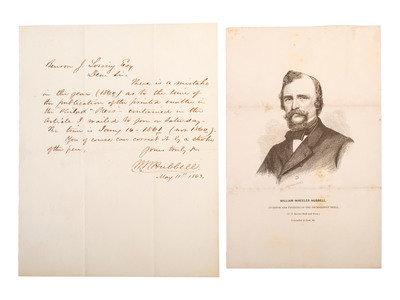 Benson J. Lossing Esq
Dear Sir.
There is a mistake
in the year (1860) as to the time of
the publication of the printed matter in
the United States contained in the
Article I mailed to you on Saturday.
The time is Jany 16-1861 (not 1860).
You of course can correct it by a stroke
of the pen.
Yours truly &c
W W Hubbell.
May 11th 1863.
WILLIAM WHEELER HUBBELL,
INVENTOR AND PATENTEE OF THE